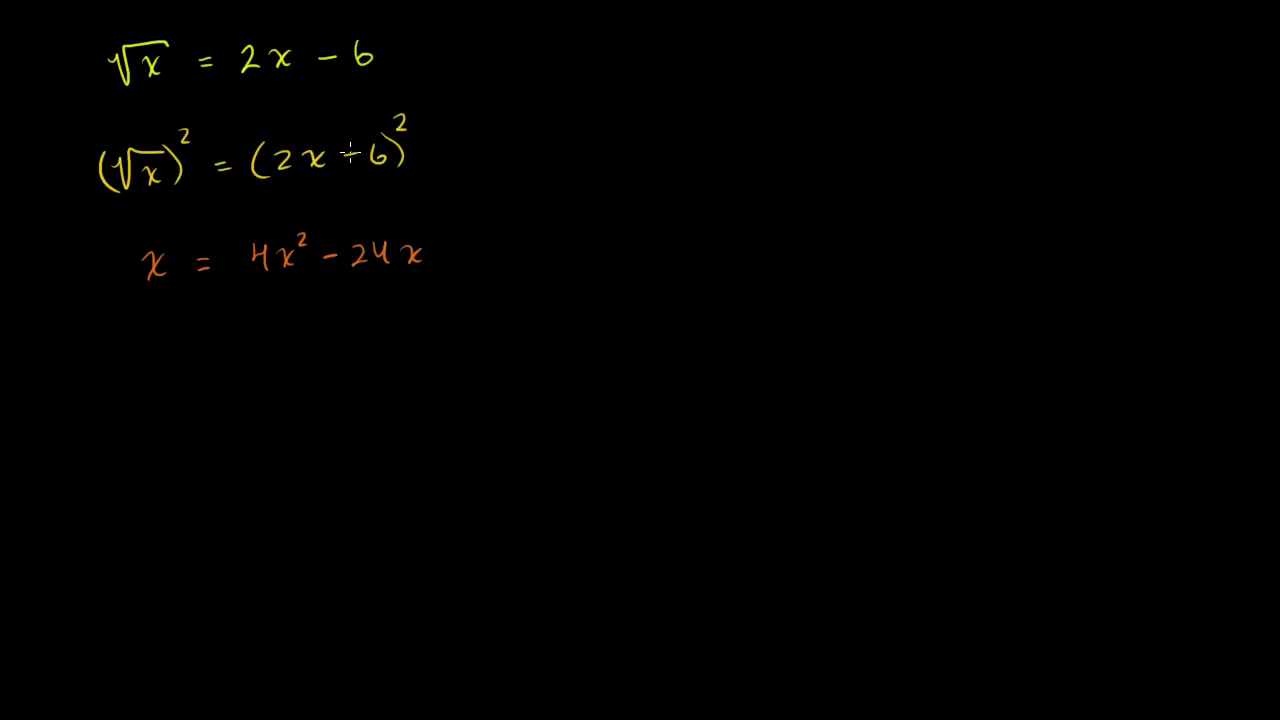 √x = 2x - 6
(√x)² = (2x - 6)²
x = 4x² - 24x